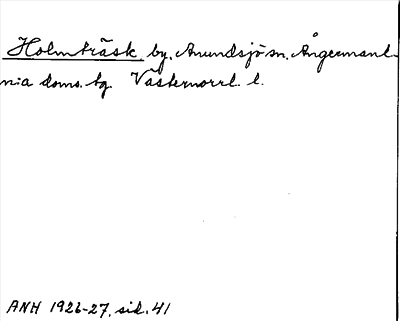 Holmträsk by, Anundsjö sn. Ångermanl.
n:a doms. tg. Västernorrl. l.
ANH 1926-27, sid. 41